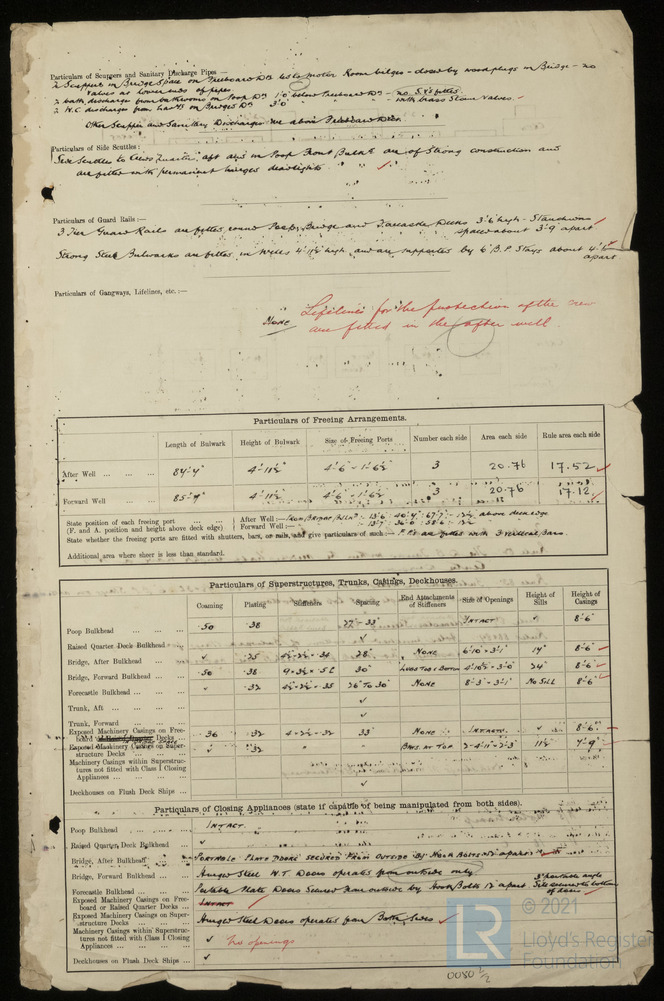 Particulars of Scuppers and Sanitary Discharge Pipes :—
2 Scuppers in Bridge Space on Freeboard Dk led to Motor Room bilges - closed by wood plugs in Bridge - no
valves at lower ends of pipes.
2 bath discharge from bathrooms on Poop Dk 1'0 below Freeboard Dk - no S.V's fitted
2 W.C. discharge from on Bridge Dk 3'0" " " - with brass Storm Valves -
Other Scupper and Sanitary Discharges are above Freeboard Deck.
Particulars of Side Scuttles :
Side Scuttles to Crews Quarters aft also in Poop Front Bulkh are of Strong construction and
are fitted with permanent hinged deadlights ✓
Particulars of Guard Rails :—
3 Tier Guard Rails are fitted round Poop, Bridge and Forecastle Decks 3'.6 high - Stanchions
spaced about 3'.9 apart ✓
Strong Steel Bulwarks are fitted in Wells 4'.11½ high and are supported by 6" B.P. Stays about 4'.6
apart
Particulars of Gangways, Lifelines, etc. :—
Lifelines for the protection of the crew
None
are fitted in the after well
Particulars of Freeing Arrangements.
Length of Bulwark Height of Bulwark Size of Freeing Ports Number each side Area each side Rule area each side
After Well ... ... ... 84'-4" 4'-11½" 4'-6" × 1'-6½ 3 20.76 17.52 ✓
Forward Well ... ... 85'-9" 4'-11½" 4'-6" × 1'-6½ 3 20.76 17.12 ✓
State position of each freeing port ... ... ...
(F. and A. position and height above deck edge)
After Well :— From Bridge Bulkh above deck edge
Forward Well :—
State whether the freeing ports are fitted with shutters, bars, or rails, and give particulars of such :— F.P's are fitted with 3 vertical Bars.
Additional area where sheer is less than standard.
Particulars of Superstructures, Trunks, Casings, Deckhouses.
Coaming Plating Stiffeners Spacing End Attachments of Stiffeners Size of Openings Height of Sills Height of Casings
Poop Bulkhead ... ... ... .50 .38 27"-33" Intact 8'-6"
Raised Quarter Deck Bulkhead ... ✓
Bridge, After Bulkhead ... ... ✓ .25 28" None 6'10" × 3'1" 14" 8'-6" ✓
Bridge, Forward Bulkhead ... ... .50 .38 30" Lugs Top & Bottom 4'10½ × 3'0" 24" 8'-6" ✓
Forecastle Bulkhead ... ... ... ✓ .32 26" to 30" None 8'-3" × 3'-1" No Sill 8'-6" ✓
Trunk, Aft ... ... ... ... ✓
Trunk, Forward ... ... ... ✓
Exposed Machinery Casings on Free-
board or Raised Quarter Decks ... .36 .32 33" None Intact ✓ 8'-6"
Exposed Machinery Casings on Super-
structure Decks ... ... ... ✓ .32 " " Bars at Top 2-4'11" × 2'3" 11½ 7'-9"
Machinery Casings within Superstruc-
tures not fitted with Class I Closing
Appliances ... ... ... ...
Deckhouses on Flush Deck Ships ... ✓
Particulars of Closing Appliances (state if capable of being manipulated from both sides).
Poop Bulkhead ... ... ... Intact.
Raised Quarter Deck Bulkhead ... ✓
Bridge, After Bulkhead ... ... Portable Plate Doors secured from outside by Hook Bolts 12" apart
Bridge, Forward Bulkhead ... ... Hinged Steel W.T. Doors operated from outside only
Forecastle Bulkhead ... ... ... Portable Plate Doors secured from outside by Hook Bolts 12" apart
3" portable angle
sill secured to bottom
of doors ✓
Exposed Machinery Casings on Free-
board or Raised Quarter Decks ... Intact
Exposed Machinery Casings on Super-
structure Decks ... ... ... Hinged Steel Doors operated from Both Sides ✓
Machinery Casings within Superstruc-
tures not fitted with Class I Closing
Appliances ... ... ... ... ✓ No openings
Deckhouses on Flush Deck Ships ... ✓
© 2021
LR
Lloyd's Register
Foundation
0080 2/2